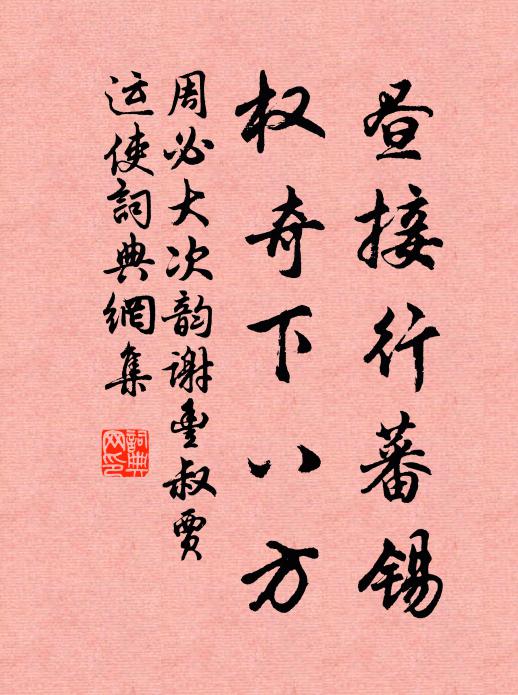 昼接行蕃锡
权奇下八方
周必大次韵谢丰叔贾
运使詞典網集
詞典网印